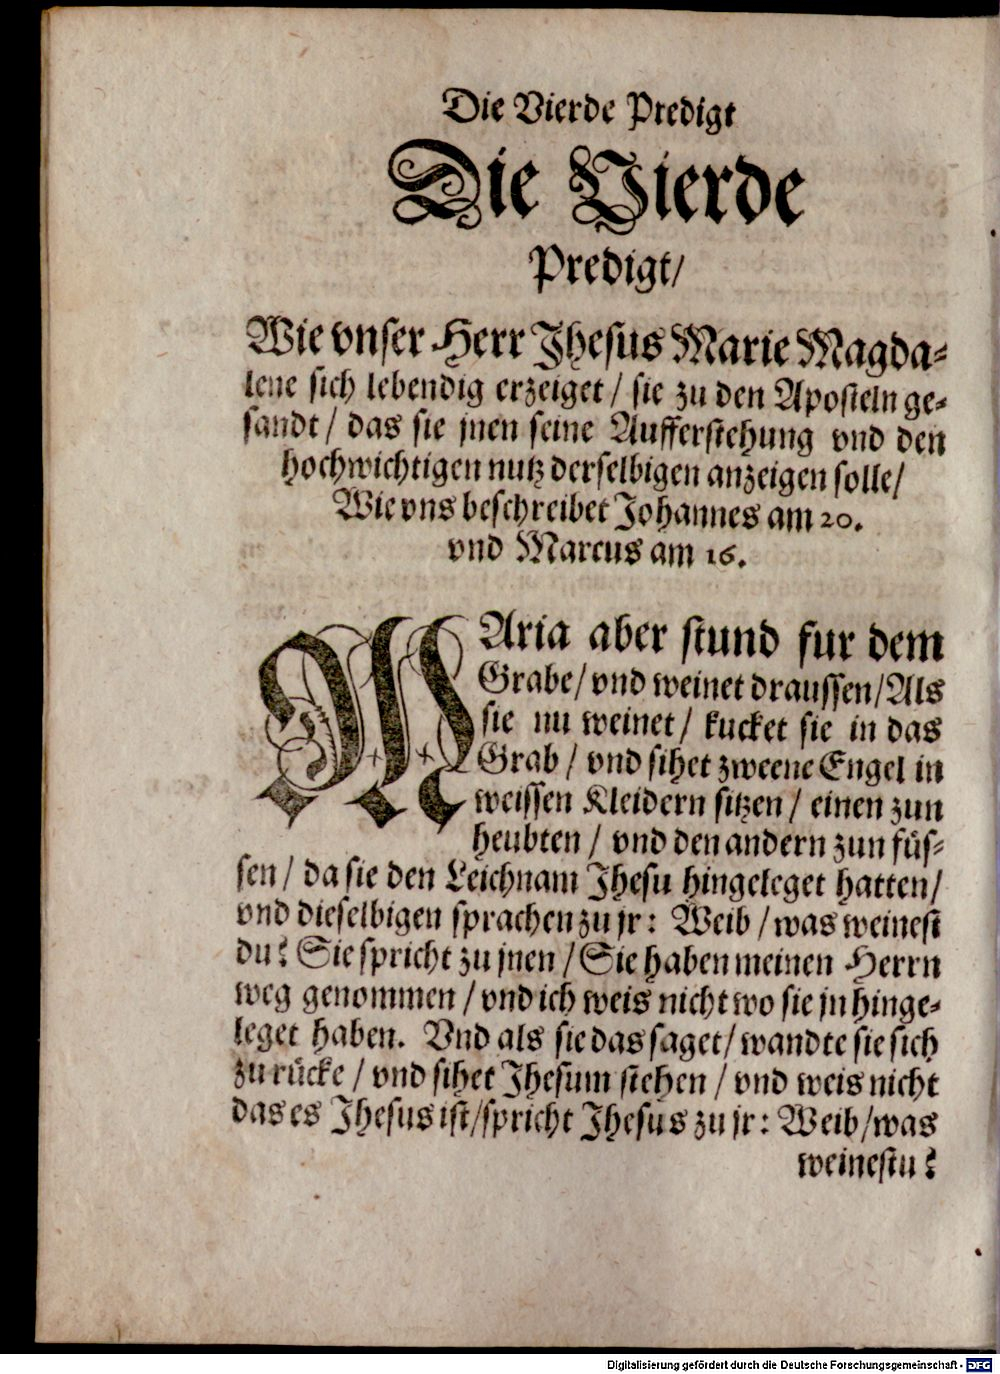 Die Vierde Predigt
Die Vierde
Predigt/
Wie vnser Herr Jhesus Marie Magda⸗
lene sich lebendig erzeiget / sie zu den Aposteln ge⸗
sandt / das sie jnen seine Aufferstehung vnd den
hochwichtigen nutz derselbigen anzeigen solle/
Wie vns beschreibet Johannes am 20.
vnd Marcus am 16.
MAria aber stund fur dem
Grabe/ vnd weinet draussen/Als
sie nu weinet/ kucket sie in das
Grab / vnd sihet zweene Engel in
weissen Kleidern sitzen / einen zun
heubten / vnd den andern zun füs⸗
sen / da sie den Leichnam Jhesu hingeleget hatten/
vnd dieselbigen sprachen zu jr: Weib / was weinest
du? Sie spricht zu jnen / Sie haben meinen Herrn
weg genommen / vnd ich weis nicht wo sie jn hinge⸗
leget haben. Vnd als sie das saget/ wandte sie sich
zu rücke / vnd sihet Jhesum stehen / vnd weis nicht
das es Jhesus ist/spricht Jhesus zu jr: Weib/was
weinestu?
Digitalisierung gefördert durch die Deutsche Forschungsgemeinschaft - DFG